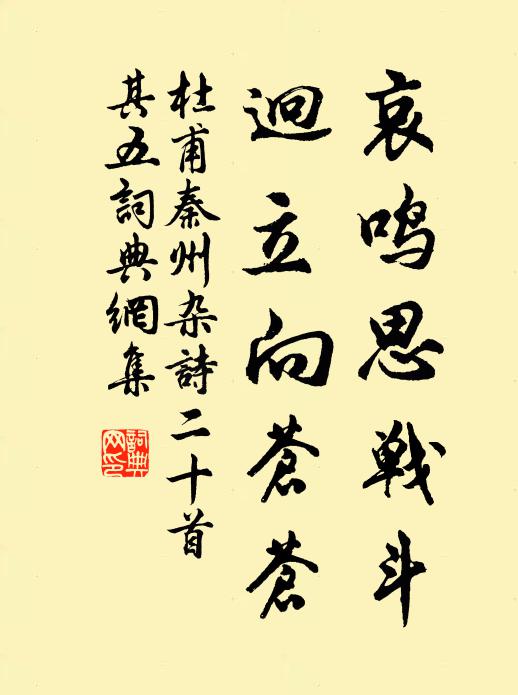 哀鸣思戦斗
迥立向蒼蒼
杜甫秦州杂詩二十首
其五詞典網集
詞典网印